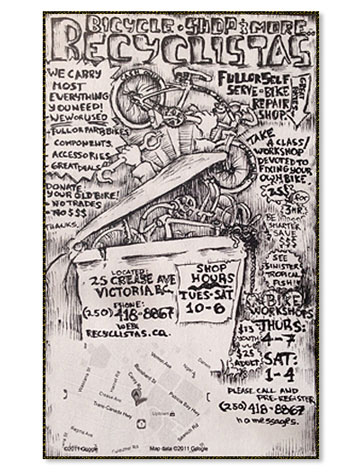 BICYCLE·SHOP & MORE
RECYCLISTAS
WE CARRY
MOST
EVERYTHING
YOU NEED!
NEW OR USED
FULL OR PART BIKES
COMPONENTS
ACCESSORIES
GREAT DEALS
DONATE
YOUR OLD BIKE!
NO TRADES
NO $$$
THANKS.
FULL OR SELF
SERVE · BIKE
REPAIR
SHOP
GREAT
RATES
TAKE
A CLASS/
WORKSHOP
DEVOTED TO
FIXING YOUR
OWN BIKE.
25$ FOR
3HR
BE
SMARTER
SAVE
$$$
SEE
SINISTER
TROPICAL
FISH!
LOCATED:
25 CREASE AVE
VICTORIA BC.
PHONE:
(250) 418-8867
WEB:
RECYCLISTAS.CA.
SHOP
HOURS
TUES-SAT
10-6
BIKE
WORKSHOPS
THURS:
4-7
SAT:
1-4
$15
YOUTH
$25
ADULT
PLEASE CALL AND
PRE-REGISTER
(250) 418-8867
no messages.
Vernon Ave
Blanshard St
Crease Ave
Trans-Canada Hwy
Patricia Bay Hwy
Uptown
Saanich Rd
©2011 Google
Map data ©2011 Google